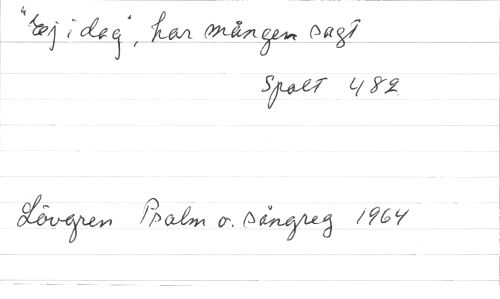 "Ej i dag", har mången sagt
Spalt 482
Lövgren Psalm o. sångreg 1964